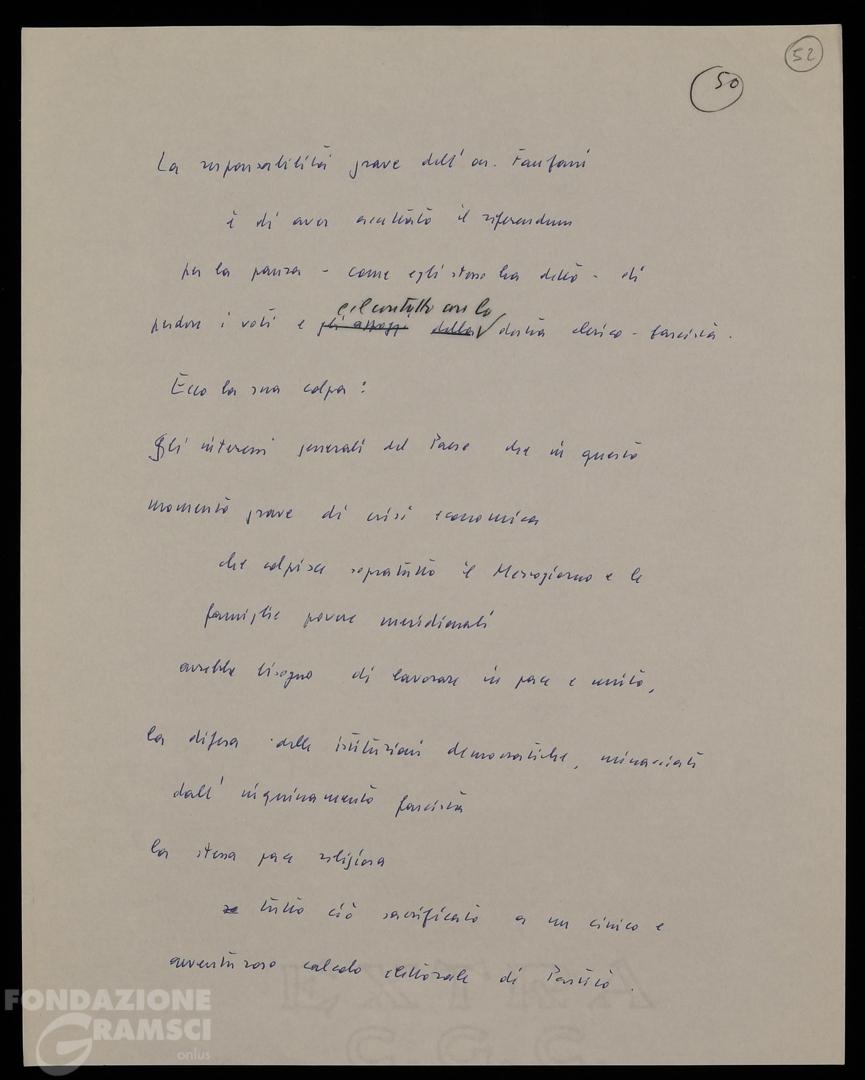 52
50
La responsabilità grave dell'on. Fanfani
è di aver accettato il referendum
per la paura - come egli stesso ha detto - di
e il contatto con la
perdere i voti e gli appoggi della destra clerico-fascista.
Ecco la sua colpa:
Gli interessi generali del Paese che in questo
momento grave di crisi economica
che colpisce sopratutto il Mezzogiorno e le
famiglie povere meridionali
avrebbe bisogno di lavorare in pace e unità,
la difesa delle istituzioni democratiche, minacciati
dall'inquinamento fascista
la stessa pace religiosa
tutto ciò sacrificato a un cinico e
avventuroso calcolo elettorale di Partito.
EXTRA
C.G.C.
FONDAZIONE
GRAMSCI
onlus